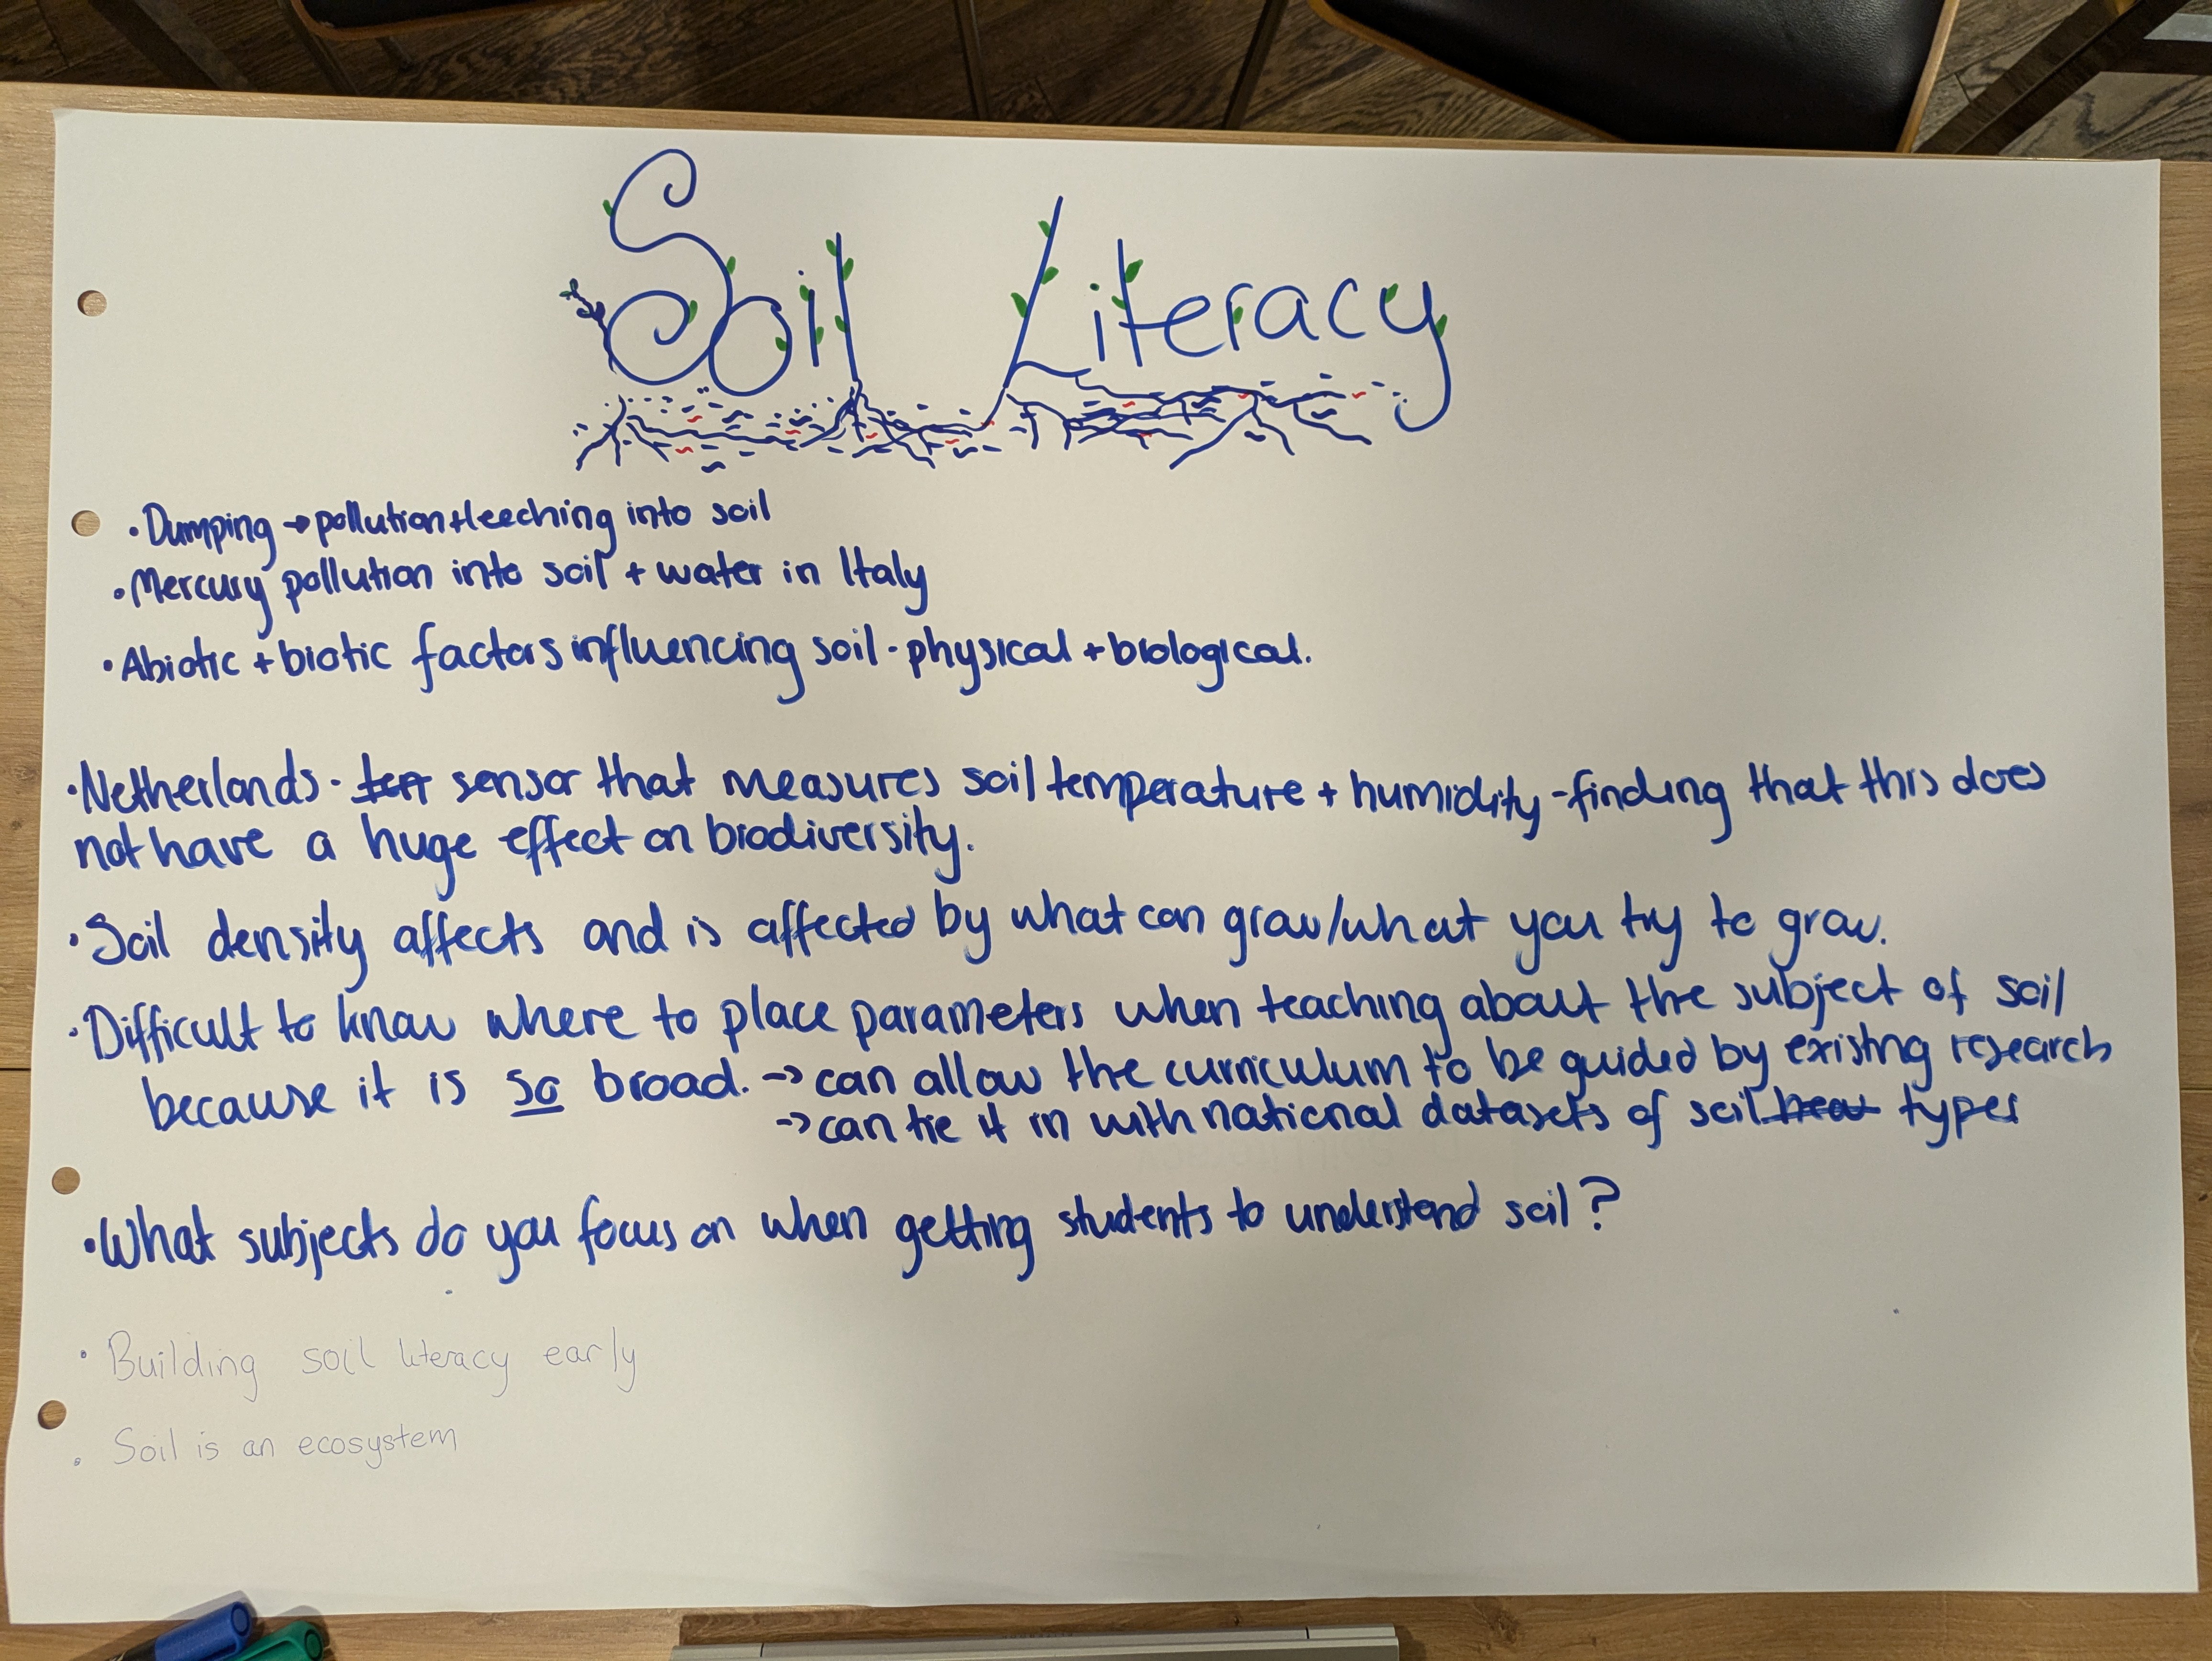 Soil Literacy
• Dumping → pollution + leeching into soil
• Mercury pollution into soil + water in Italy
• Abiotic + biotic factors influencing soil - physical + biological.
• Netherlands - sensor that measures soil temperature + humidity - finding that this does
not have a huge effect on biodiversity.
• Soil density affects and is affected by what can grow/what you try to grow.
• Difficult to know where to place parameters when teaching about the subject of soil
because it is so broad. → can allow the curriculum to be guided by existing research
→ can tie it in with national datasets of soil types
• What subjects do you focus on when getting students to understand soil?
• Building soil literacy early
• Soil is an ecosystem